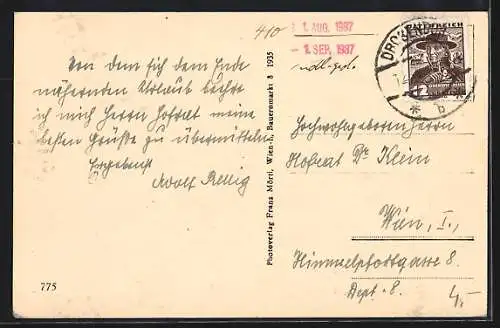 410
1. AUG. 1987
- 1. SEP. 1987
DRO
ÖSTERREICH
12
* b
Von dem sich dem Ende
nähernden Urlaub
mich mich Herr Hofrat meine
besten Grüße zu übermitteln
Ergebenst
Adolf Rellig
775
Photoverlag Franz Mörtl, Wien-I, Bauernmarkt 3 1935
Hochwohlgeboren Herrn
Hofrat Dr Klein
Wien, I.,
Himmelpfortgasse 8.
Dept. 8.
4,-